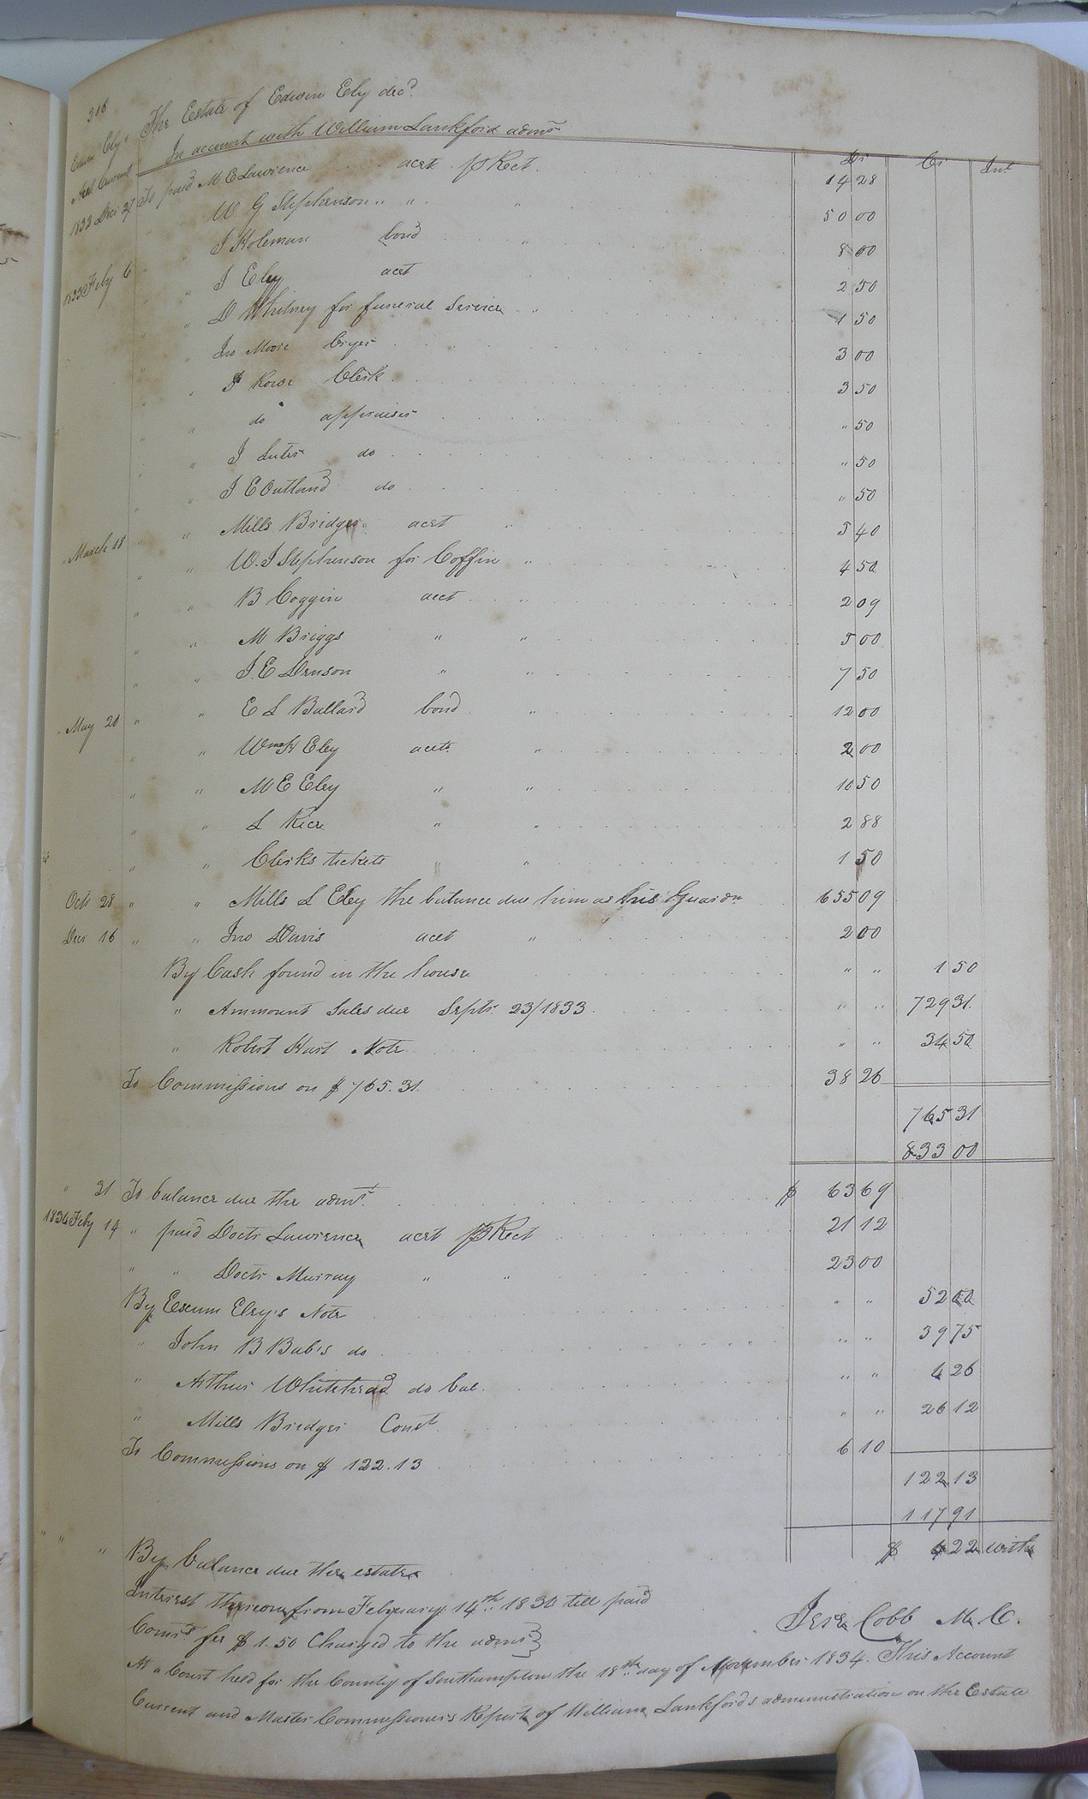 316
The Estate of Edwin Ely decd.
Edwin Ely's In account with William Lankford admr
Acct Current Dr Cr Int
1832 Dec 27 To paid M E Lawrence acct pr Rect. 14 28
" W G Stephenson " " " 50 00
" J Holeman bond " 8 00
1833 Feby 6 " J Eley acct 2 50
" D Whitney for funeral Service " 1 50
" Jno Moore Cryer 3 00
" J Rowe Clerk 3 50
" do appraiser " 50
" J Luter do " 50
" J E Outland do " 50
March 18 " Mills Bridger acct " 5 40
" " W. J Stephenson for Coffin " 4 50
" " B Coggin acct " 2 09
" " M Briggs " " 5 00
" " J. E Denson " " 7 50
May 20 " " E L Ballard bond " 12 00
" Wm H Eley acct " 2 00
" " M E Eley " " 10 50
" " L Rice " " 2 88
" " Clerks tickets " " 1 50
Oct 28 " " Mills L Eley the balance due him as his Guardn 655 09
Decr 16 " " Jno Davis acct " 2 00
By Cash found in the house " " 1 50
" Ammount Sales due Septr 23/1833 " " 729 31
" Robert Hart Note " " 34 50
To Commissions on $ 765.31 38 26
765 31
833 00
" 31 To balance due the admr. $ 63 69
1834 Feby 14 " paid Doctr Lawrence acct pr Rect 21 12
" " Doctr Murray " " 23 00
By Exum Eley's Note " " 52 00
" John B Bab's do " " 39 75
" Arthur Whitehead do bal. " " 4 26
" Mills Bridger Const " " 26 12
To Commissions on $ 122.13 6 10
122 13
117 91
" " " By balance due the estate $ 4 22 with
Interest thereon from February 14th 1834 till paid
Comrs fee $ 1.50 Charged to the admr } Jesse Cobb M. C.
At a Court held for the County of Southampton the 18th day of November 1834. This Account
Current and Master Commissioners Report of William Lankfords administration on the Estate